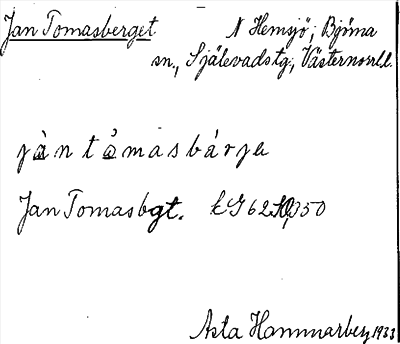 Jan Tomasberget N Hemsjö, Björna
sn., Själevadstg., Västernorrl.l.
jàn tåmasbárje
Jan Tomasbgt.
Asta Hammarberg 1933